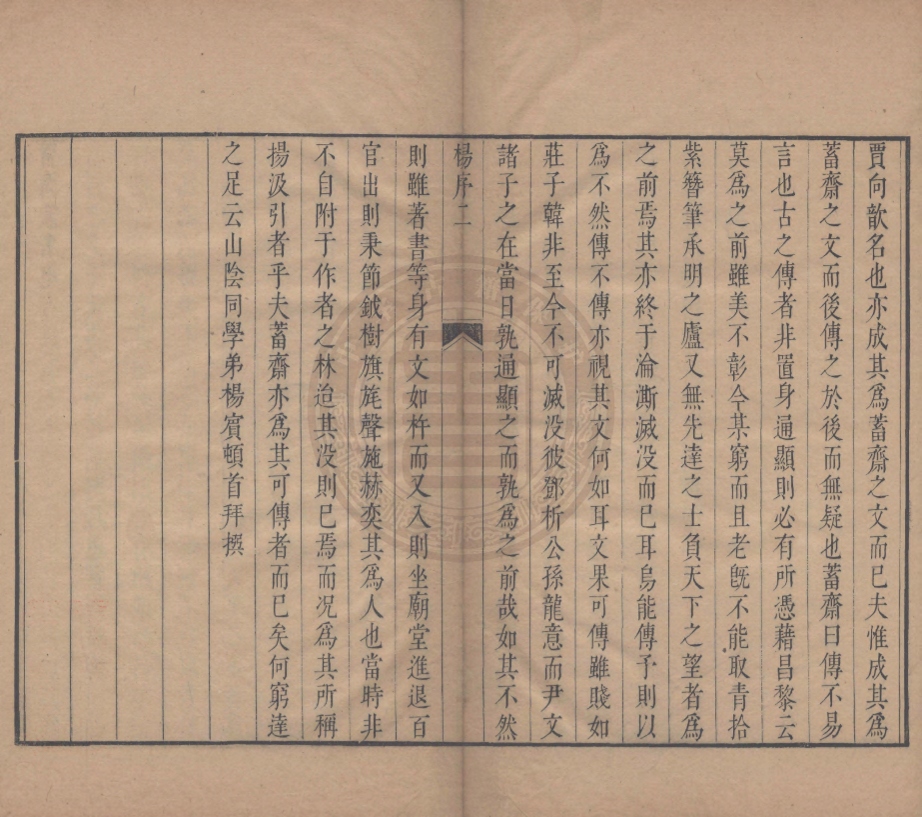 賈向歆名也亦成其爲蓄齋之文而已夫惟成其爲
蓄齋之文而後傳之於後而無疑也蓄齋曰傳不易
言也古之傳者非置身通顯則必有所憑藉昌黎云
莫爲之前雖美不彰今某窮而且老旣不能取青拾
紫簪筆承明之廬又無先達之士負天下之望者爲
之前焉其亦終于淪澌滅没而已耳烏能傳予則以
爲不然傳不傳亦視其文何如耳文果可傳雖賤如
莊子韓非至今不可滅没彼鄧析公孫龍意而尹文
諸子之在當日孰通顯之而孰爲之前哉如其不然
楊序二
則雖著書等身有文如杵而又入則坐廟堂進退百
官出則秉節鉞樹旗旄聲施赫奕其爲人也當時非
不自附于作者之林迨其没則已焉而况爲其所稱
揚汲引者乎夫蓄齋亦爲其可傳者而已矣何窮達
之足云山陰同學弟楊賓頓首拜撰